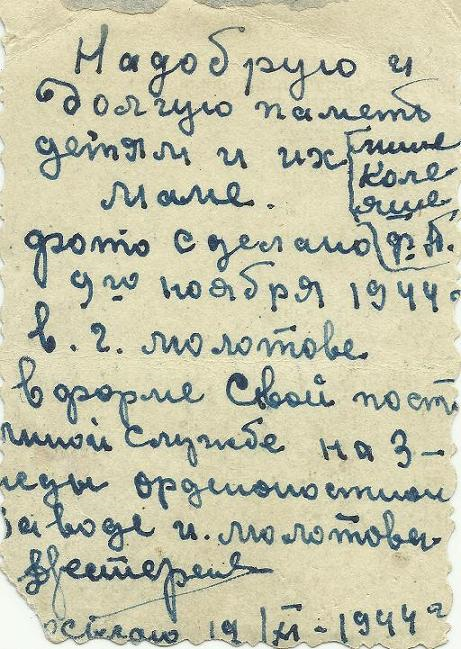 Надобрую и
долгую паметь
детям и их
маме.
нине
Коле
яше
ф.П.
фото сделано
9го ноября 1944г
в. г. молотове
в форме Свой пост
яной службе на 3-
жды орденоностном
заводе и. молотова
19/XI-1944г